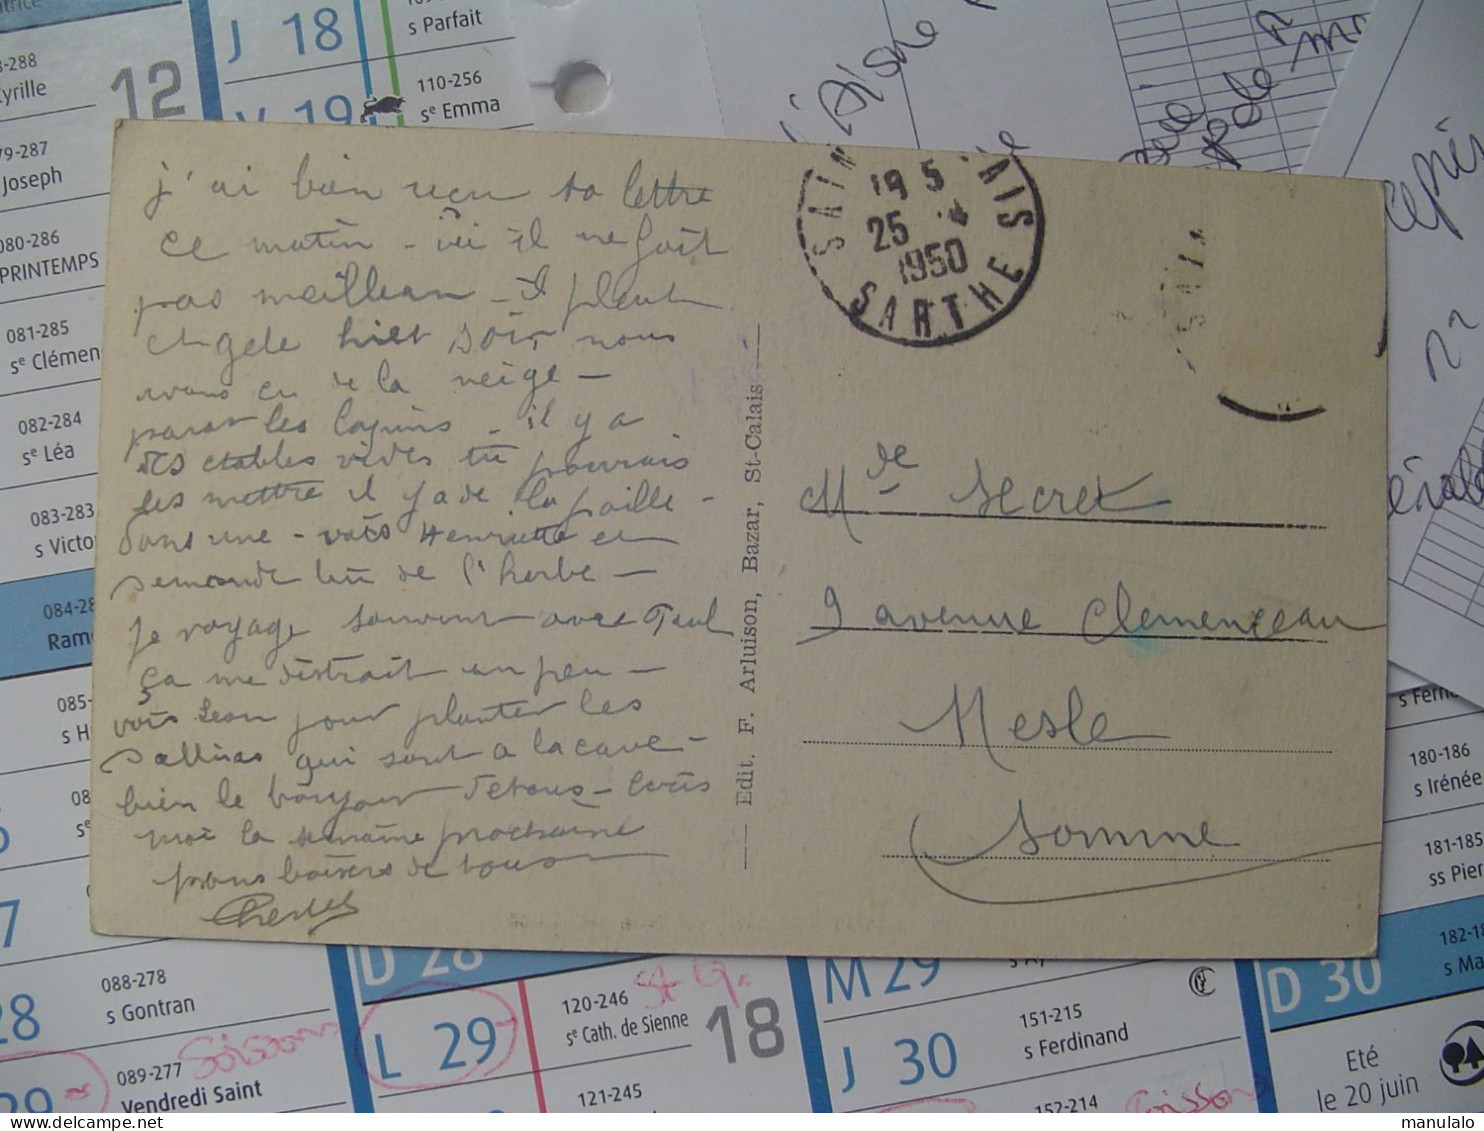 j'ai bien reçu ta lettre
ce matin - ici il ne fait
pas meilleur - il pleut
et gele hier soir nous
avons eu de la neige -
pour les lapins - il y a
des etables vides tu pourrais
les mettre il y a de la paille -
dans une - vois Henriette et
demande lui de l'herbe -
Je voyage souvent avec Paul
ça me distrait un peu -
vois Leon pour planter les
qui sont a la cave -
bien le bonjour de tous - Ecris
moi la semaine prochaine
gros baisers de tous
Edit. F. Arluison, Bazar, St-Calais
SAINT CALAIS
19 5
25 4
1950
SARTHE
Mde Secret
9 avenue Clemenceau
Nesle
Somme
J 18
12
V 19
s Parfait
110-256
se Emma
288
Cyrille
79-287
Joseph
080-286
PRINTEMPS
081-285
se Clémen
082-284
se Léa
083-283
s Victo
Ram
085-
088-278
s Gontran
28
089-277
Vendredi Saint
Soissons
29
D 28
L 29
120-246
se Cath. de Sienne
St Q.
18
121-245
M 29
J 30
151-215
s Ferdinand
152-214
Soissons
D 30
Eté
le 20 juin
180-186
s Irénée
181-185
ss Pier
182-18
s Ma
manulalo